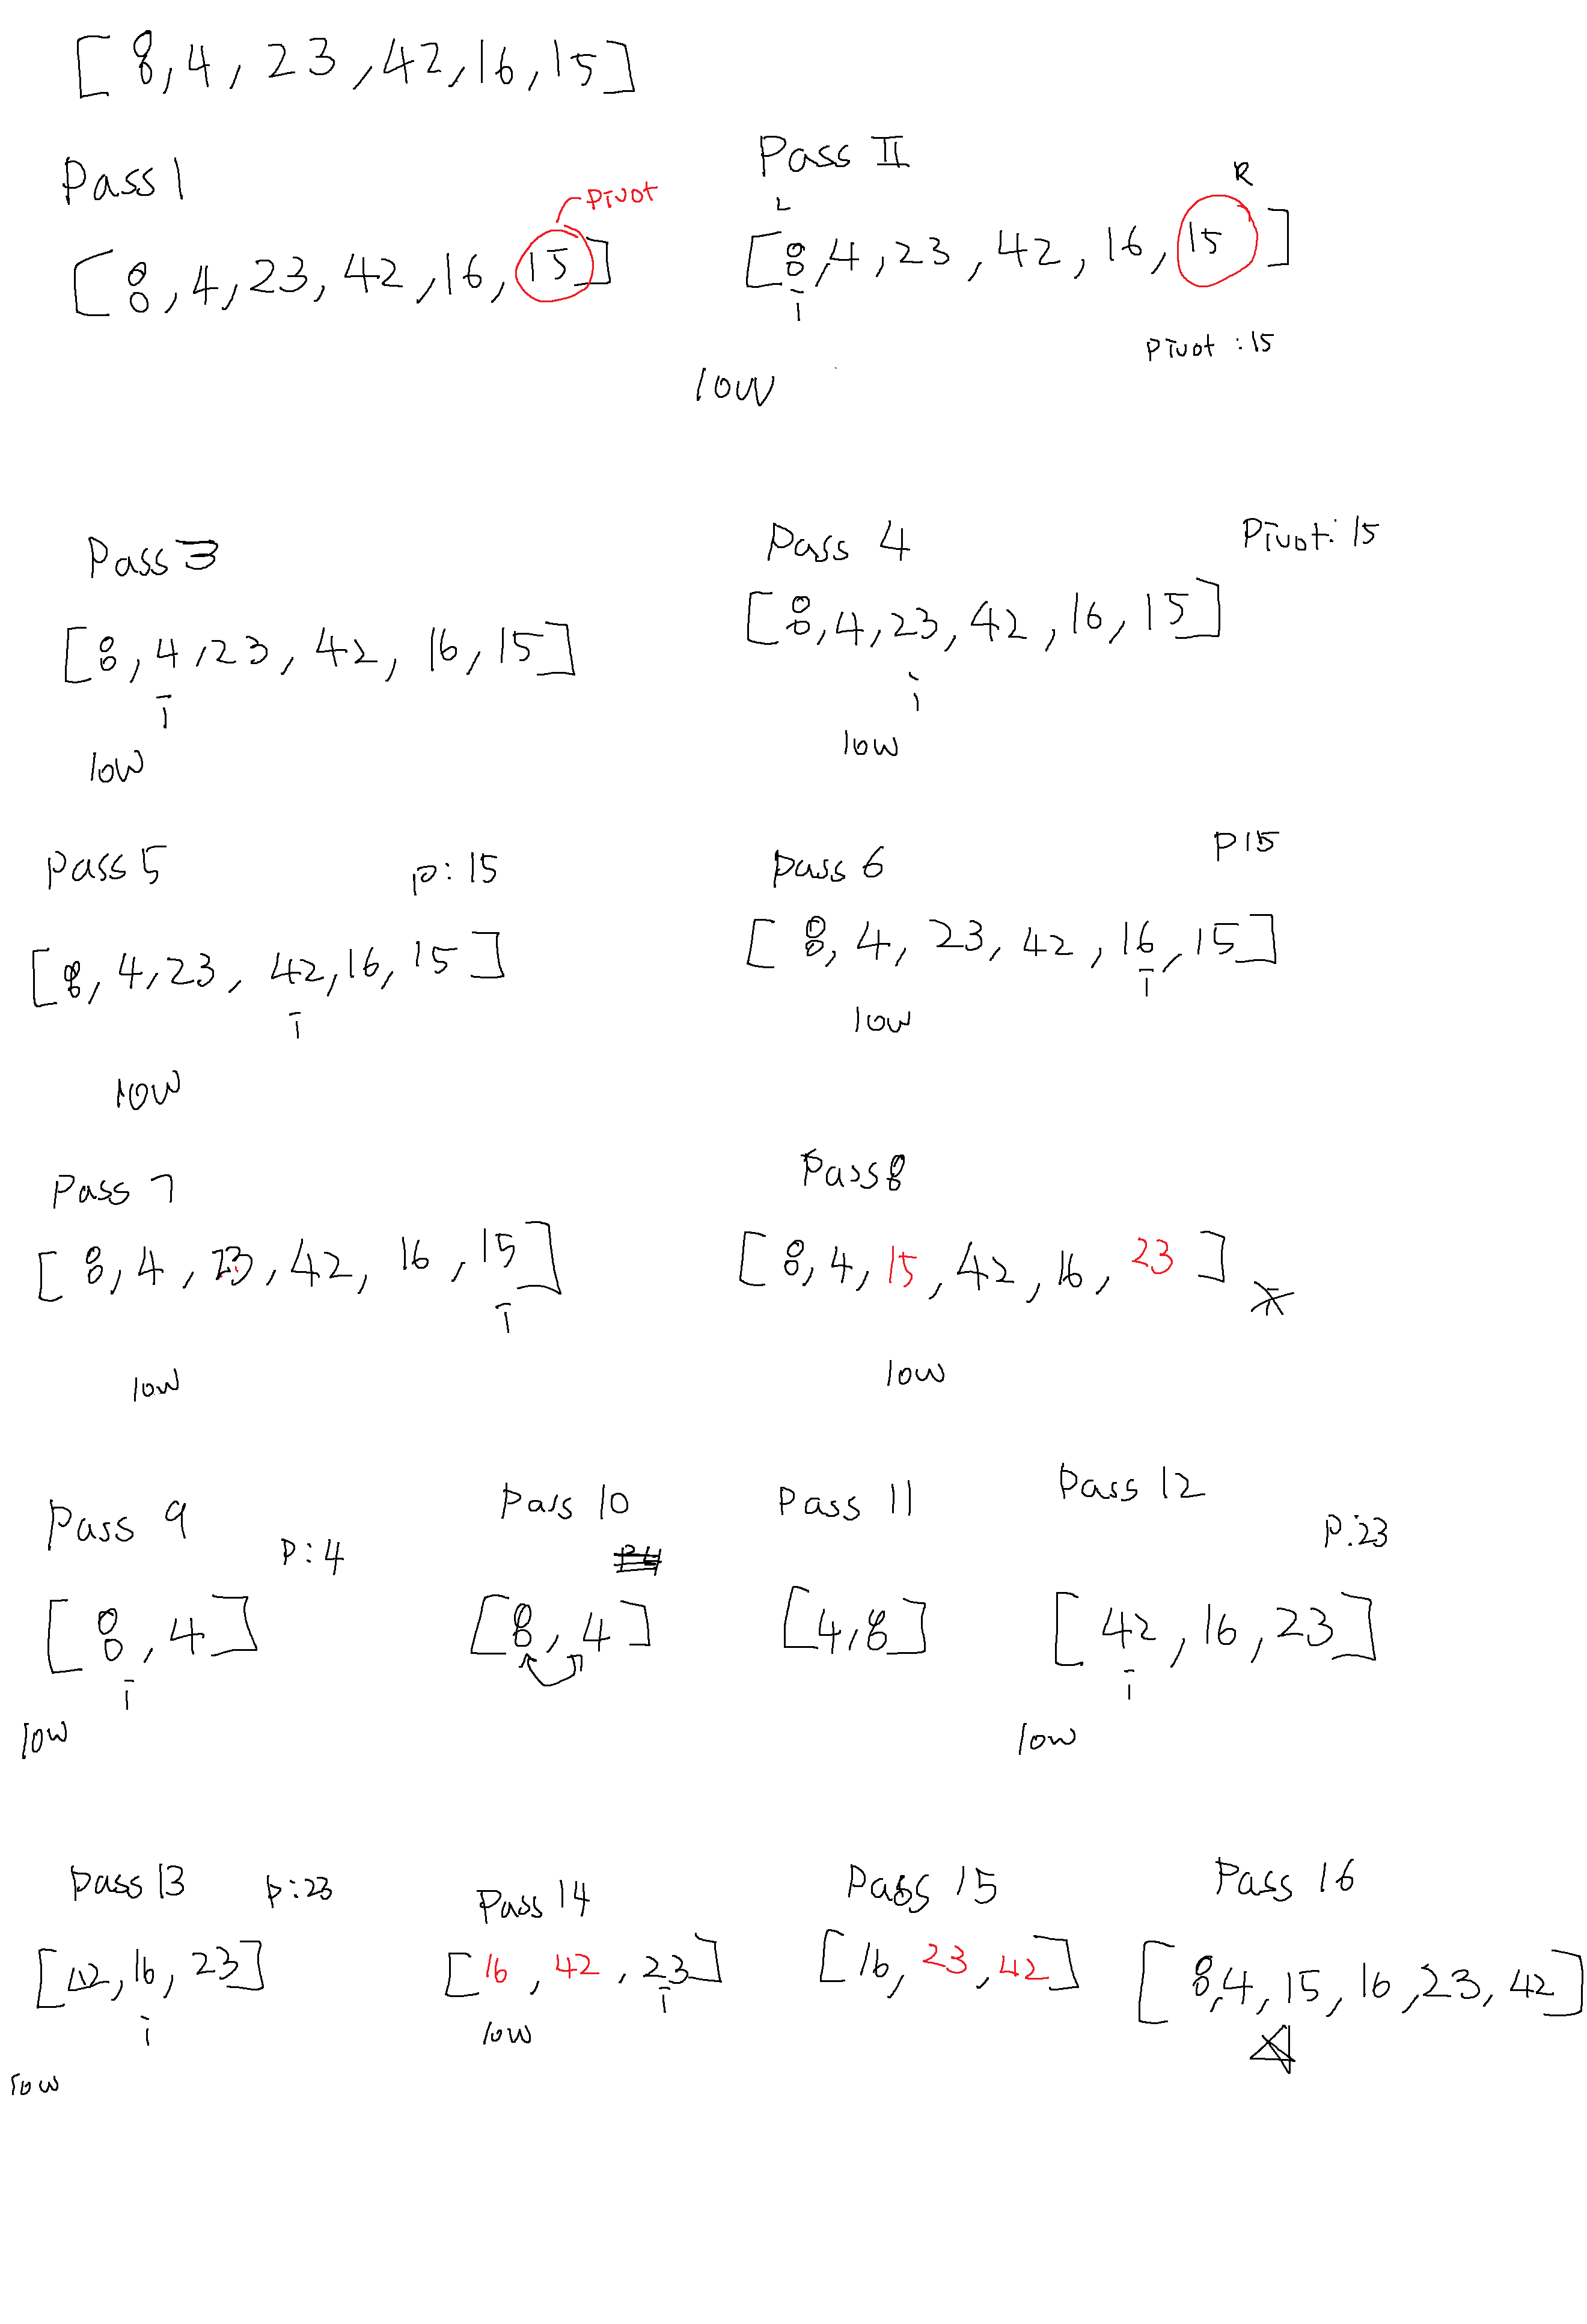 [ 8, 4, 23, 42, 16, 15]
Pass 1
Pivot
[ 8, 4, 23, 42, 16, 15]
Pass II
L R
[8, 4, 23, 42, 16, 15 ]
i
Pivot : 15
low
Pass 3
[8, 4, 23, 42, 16, 15]
i
low
Pass 4 Pivot: 15
[8, 4, 23, 42, 16, 15]
i
low
Pass 5 p: 15
[8, 4, 23, 42, 16, 15]
i
low
Pass 6 P15
[ 8, 4, 23, 42, 16, 15]
i
low
Pass 7
[ 8, 4, 23, 42, 16, 15]
i
low
Pass 8
[ 8, 4, 15, 42, 16, 23 ]
low
Pass 9 P: 4
[ 8, 4]
i
low
Pass 10
[8, 4]
Pass 11
[4, 8]
Pass 12 P: 23
[ 42, 16, 23]
i
low
Pass 13 p: 23
[42, 16, 23]
i
low
Pass 14
[16, 42, 23]
i
low
Pass 15
[16, 23, 42]
Pass 16
[ 8, 4, 15, 16, 23, 42]